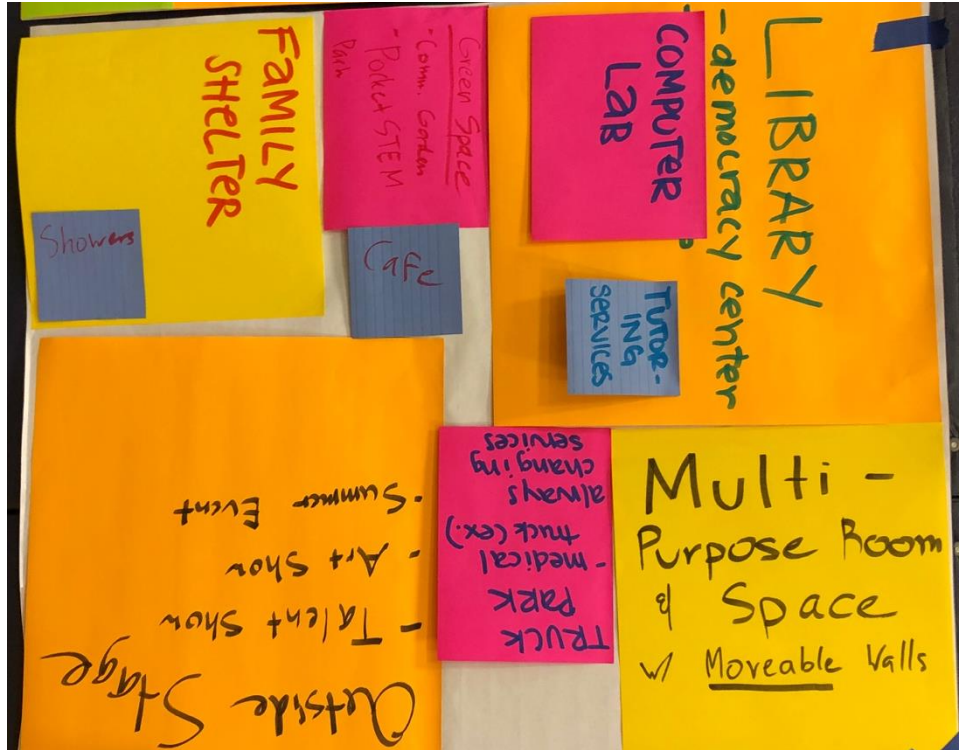 FAMILY
SHELTER
Showers
Green Space
- Comm. Garden
- Pocket STEM
Park
Cafe
LIBRARY
- democracy center
COMPUTER
LAB
TUTOR-
ING
SERVICES
Outside Stage
- Talent Show
- Art Show
- Summer Event
TRUCK
PARK
- medical
truck (ex.)
always
changing
services
Multi -
Purpose Room
& Space
w/ Moveable Walls